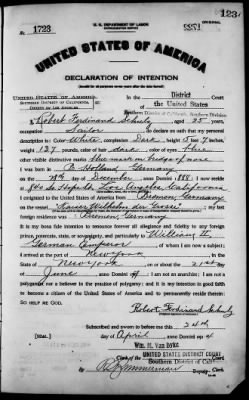 U. S. DEPARTMENT OF LABOR
No. 1723
UNITED STATES OF AMERICA
DECLARATION OF INTENTION
UNITED STATES OF AMERICA
SOUTHERN DISTRICT OF CALIFORNIA
COUNTY OF LOS ANGELES
In the District Court
of the United States
Southern District of California, Southern Division
I, Robert Ferdinand Schulz, aged 25 years,
occupation Sailor, do declare on oath that my personal
description is: Color White, complexion Dark, height 5 feet 7 inches,
weight 137 pounds, color of hair dark, color of eyes
other visible distinctive marks blue mark on bridge of nose
I was born in Holland, Germany
on the day of December, anno Domini 1888; I now reside
at Los Angeles California
I emigrated to the United States of America from Bremen, Germany
on the vessel Kaiser Wilhelm der Grosse; my last
foreign residence was Bremen, Germany
It is my bona fide intention to renounce forever all allegiance and fidelity to any foreign
prince, potentate, state, or sovereignty, and particularly to William II
German Emperor, of whom I am now a subject; I
arrived at the port of New York, in the
State of New York, on or about the 21st day
of June, anno Domini; I am not an anarchist; I am not a
polygamist nor a believer in the practice of polygamy; and it is my intention in good faith
to become a citizen of the United States of America and to permanently reside therein:
SO HELP ME GOD.
Robert Ferdinand Schulz
Subscribed and sworn to before me this 24th
[SEAL] day of April, anno Domini
Wm. M. Van Dyke
Clerk of the UNITED STATES DISTRICT COURT
Southern District of Cal
By Zimmerman, Deputy Clerk.